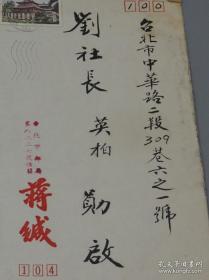 100
台北市中華路二段309巷六之一號
劉社長 英柏 勛啟
台北市郵局
蔣緘
104